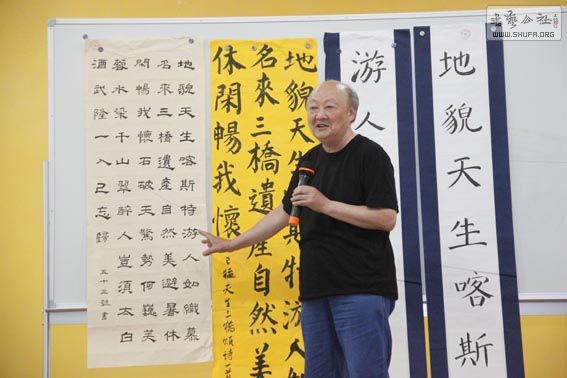 WWW.SHUFA.ORG
地貌天生喀斯
游人
地貌天生
斯特游人
名來三橋遺產自然美
休閑暢我懷
地貌天生喀斯特游人如織慕
名來三橋遺產自然美避暑休
閑暢我懷石破天驚勢何巍芙
蓉水染千山翠醉人豈須太白
酒武隆一入已忘歸
五十三號書